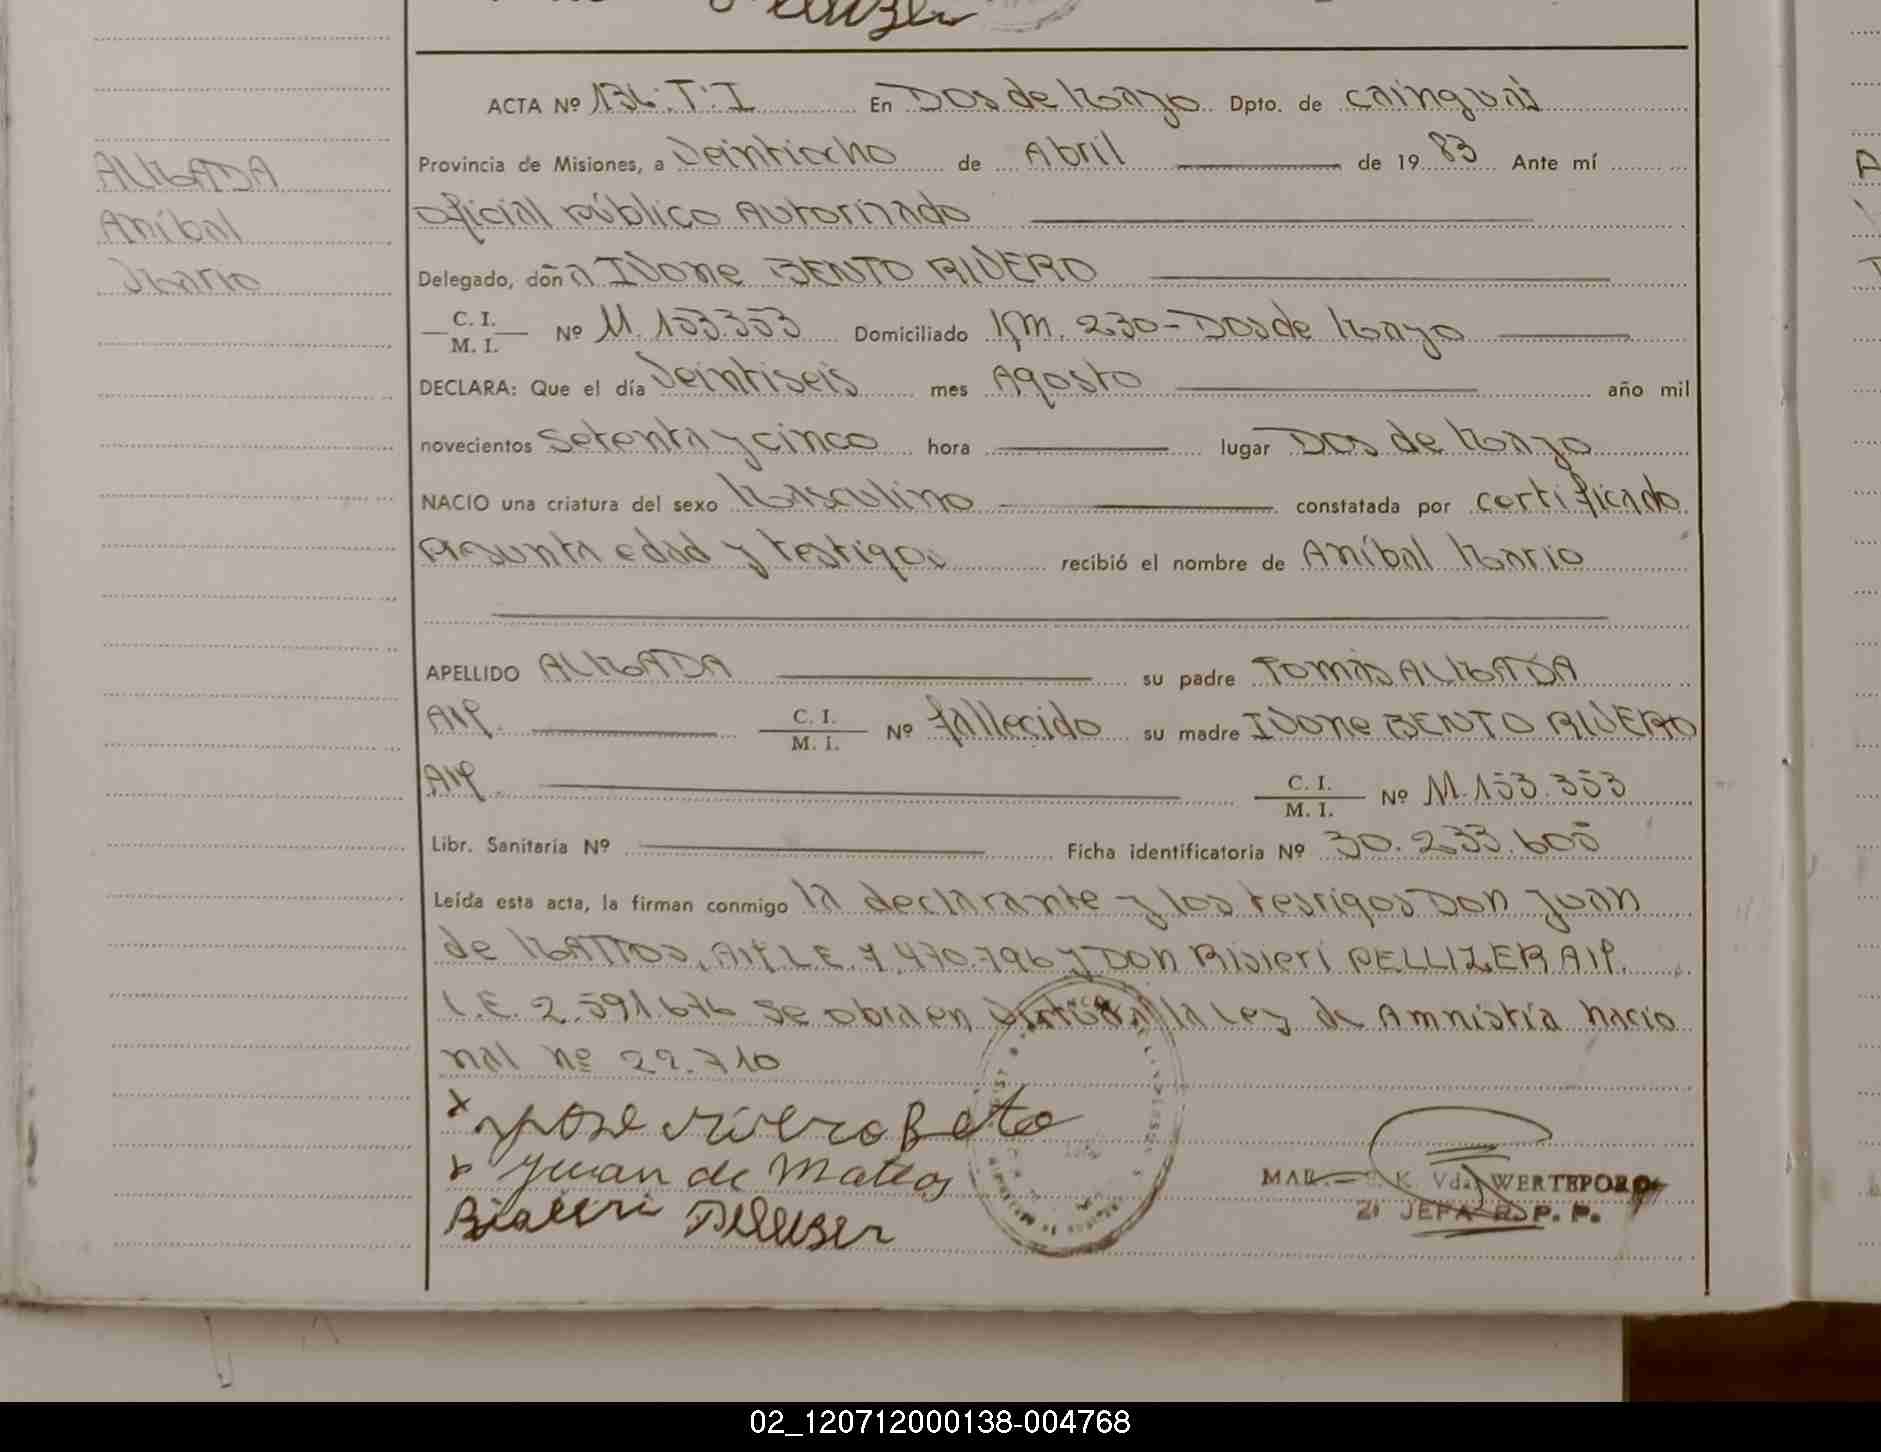 ACTA Nº 136. T. I En Dos de Mayo Dpto. de Cainguás
Provincia de Misiones, a Veintiocho de Abril de 19 83 Ante mí
Oficial público Autorizado
ALMADA
Aníbal
Mario
Delegado, doña Ivone BENTO RIVERO
C. I.
M. I. Nº M. 153.353 Domiciliado Km. 230-Dos de Mayo
DECLARA: Que el día Veintiseis mes Agosto año mil
novecientos Setenta y cinco hora lugar Dos de Mayo
NACIO una criatura del sexo Masculino constatada por certificado
Presunta edad y testigos recibió el nombre de Aníbal Mario
APELLIDO ALMADA su padre Tomás ALMADA
Arg. C. I.
M. I. Nº fallecido su madre Ivone BENTO RIVERO
Arg. C. I.
M. I. Nº M. 153.353
Libr. Sanitaria Nº Ficha identificatoria Nº 30.233.605
Leída esta acta, la firman conmigo la declarante y los testigos Don Juan
de MATTOS, Arg. L.E. 7.470.796 y Don Bisieri PELLIZER Arg.
L.E. 2.591.676 Se obra en virtud a la Ley de Amnistía nacio
nal Nº 22.710
Juan de Mattos
Pellizer
Vda WERTEPORO
JEFA R. P. P.
02_120712000138-004768